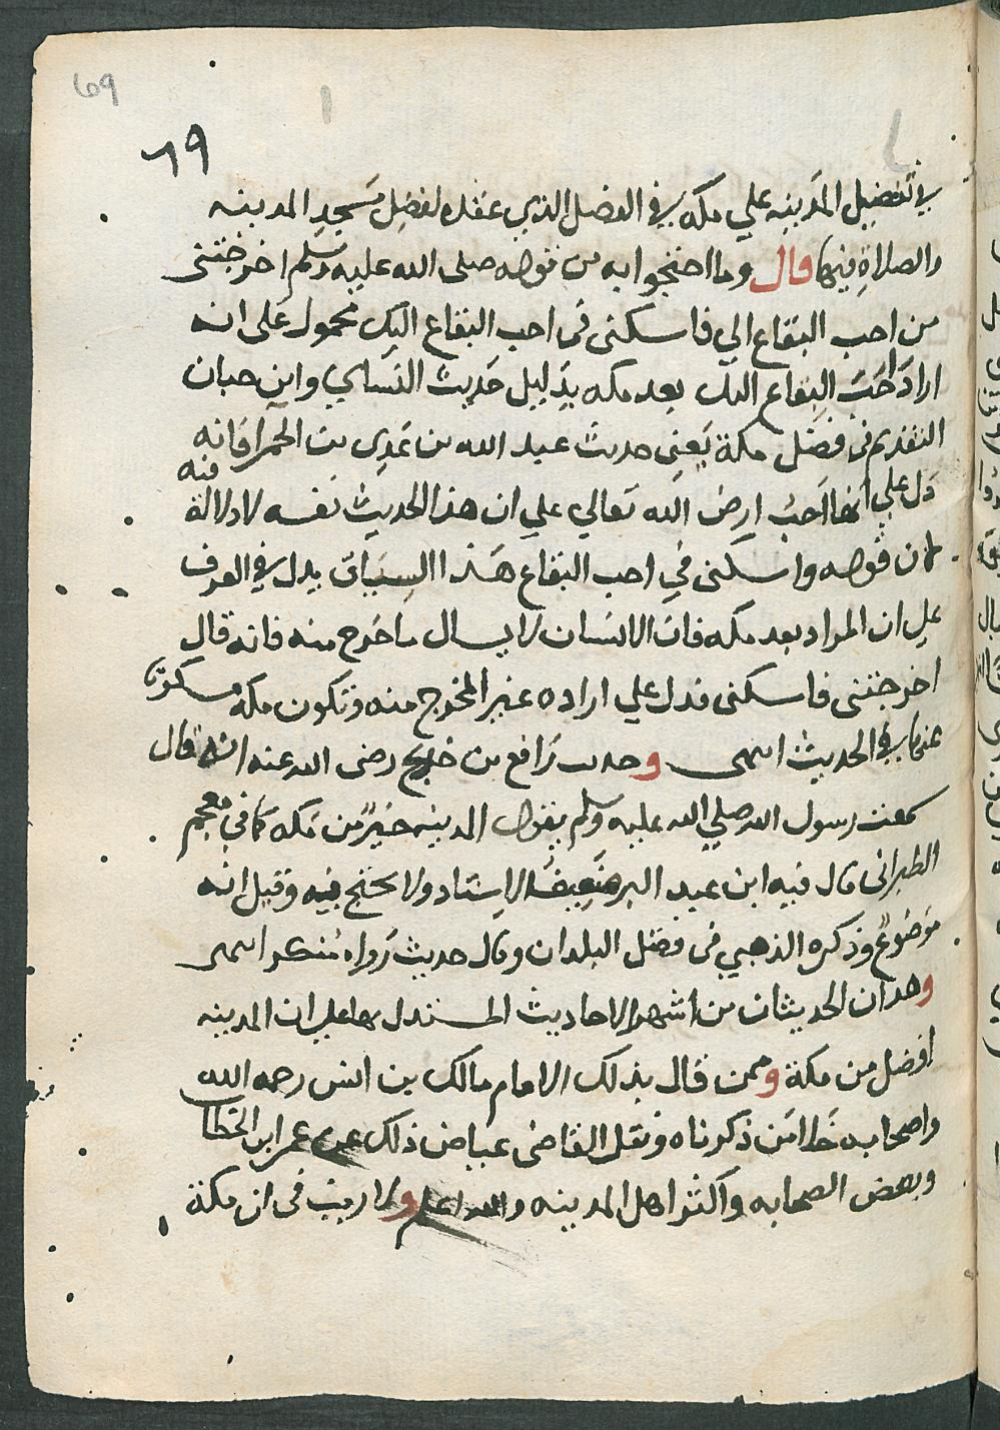 69
٦٩
في تفضيل المدينه علي مكه في الفصل الذي عقده لفضل مسجد المدينه
والصلاة فيها قال وما احتجوا به من قوله صلى الله عليه وسلم اخرجتنى
من احب البقاع الي فاسكنى فى احب البقاع اليك محمول على انه
اراد احب البقاع اليك بعد مكه بدليل حديث النساي وابن حبان
المتقدم في فضل مكة يعنى حديث عبد الله بن عدى بن الحمرا فانه
دل علي انها احب ارض الله تعالي علي ان هذا الحديث نفسه لا دلالة فيه
لان قوله واسكنى في احب البقاع هذا السياق يدل في العرف
علي ان المراد بعد مكه فان الانسان لا يسال ما خرج منه فانه قال
اخرجتنى فاسكنى فدل علي اراده غير المخرج منه وتكون مكة مسكوتا
عنها في الحديث انتهى وحديث رافع بن خديج رضى الله عنه انه قال
سمعت رسول الله صلي الله عليه وسلم يقول المدينه خير من مكه كما في معجم
الطبرانى قال فيه ابن عبد البر ضعيف الاسناد ولا يحتج فيه وقيل انه
موضوع وذكره الذهبي فى فضل البلدان وقال حديث رواه منكر انتهى
وهذان الحديثان من اشهر الاحاديث المستدل بها علي ان المدينه
افضل من مكة وممن قال بذلك الامام مالك بن انس رحمه الله
واصحابه خلا من ذكرناه ونقل القاضى عياض ذلك عن عمر ابن الخطاب
وبعض الصحابه واكثر اهل المدينه والله اعلم ولا ريب فى ان مكة